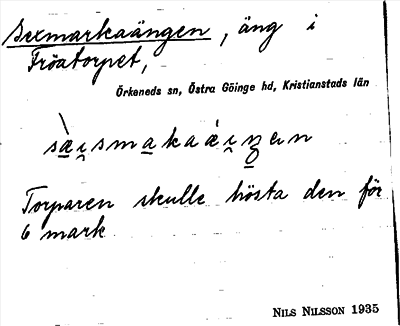 Sexmarkaängen, äng i
Fröatorpet,
Örkeneds sn, Östra Göinge hd, Kristianstads län
Torparen skulle hösta den för
6 mark
NILS NILSSON 1935